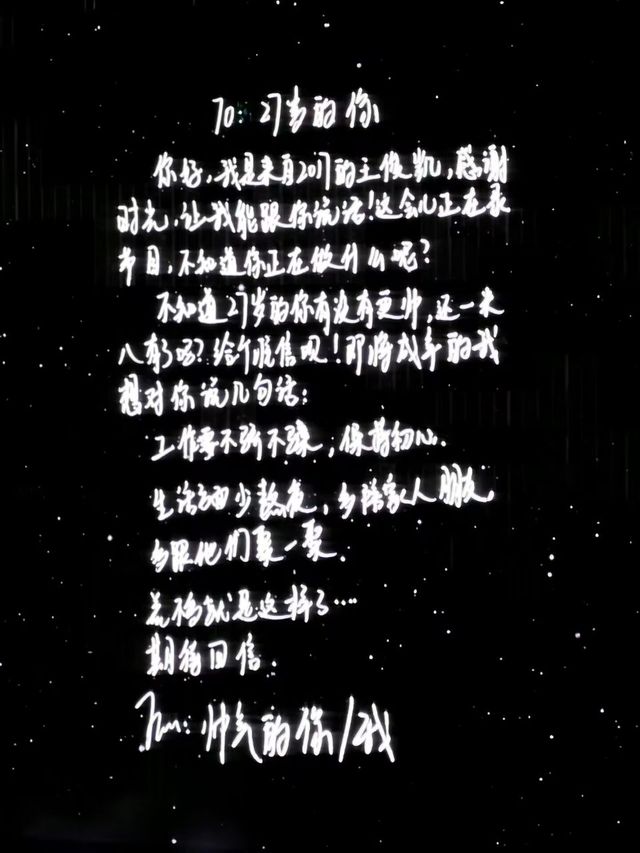 To: 27岁的你
你好,我是来自2017的王俊凯,感谢
时光,让我能跟你说话!这会儿正在录
节目,不知道你正在做什么呢?
不知道27岁的你有没有更帅,还一米
八有了吗?给个消息呗!即将成年的我
想对你说几句话:
工作要不骄不躁,保持初心.
生活要少熬夜,多陪家人朋友,
多跟他们聚一聚.
差不多就是这样了....
期待回信.
From: 帅气的你/我